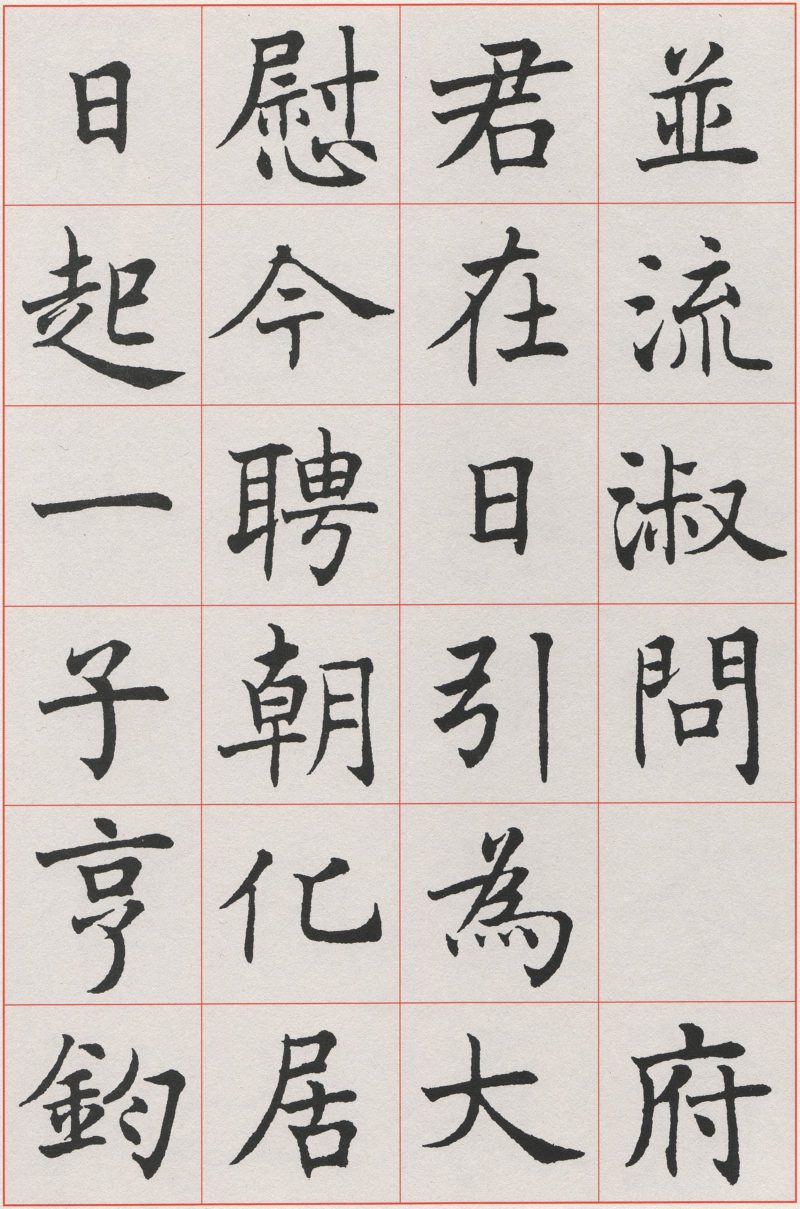 並流淑問 府
君在日引為大
慰今聘朝化居
日起一子亨鈞